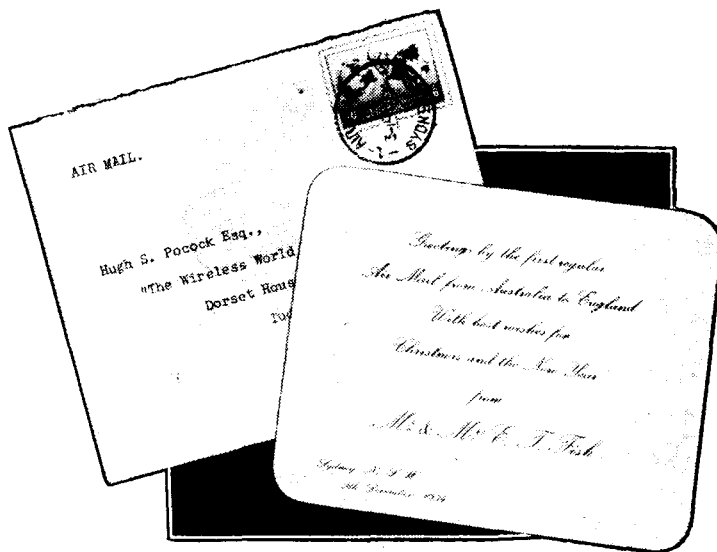 AIR MAIL.
Hugh S. Pocock Esq.,
"The Wireless World
Dorset Hous
Tud
AIR
SYDNEY
Greetings by the first regular
Air Mail from Australia to England
With best wishes for
Christmas and the New Year
from
Mr & Mrs E. T. Fisk
Sydney N. S. W.
December 1934